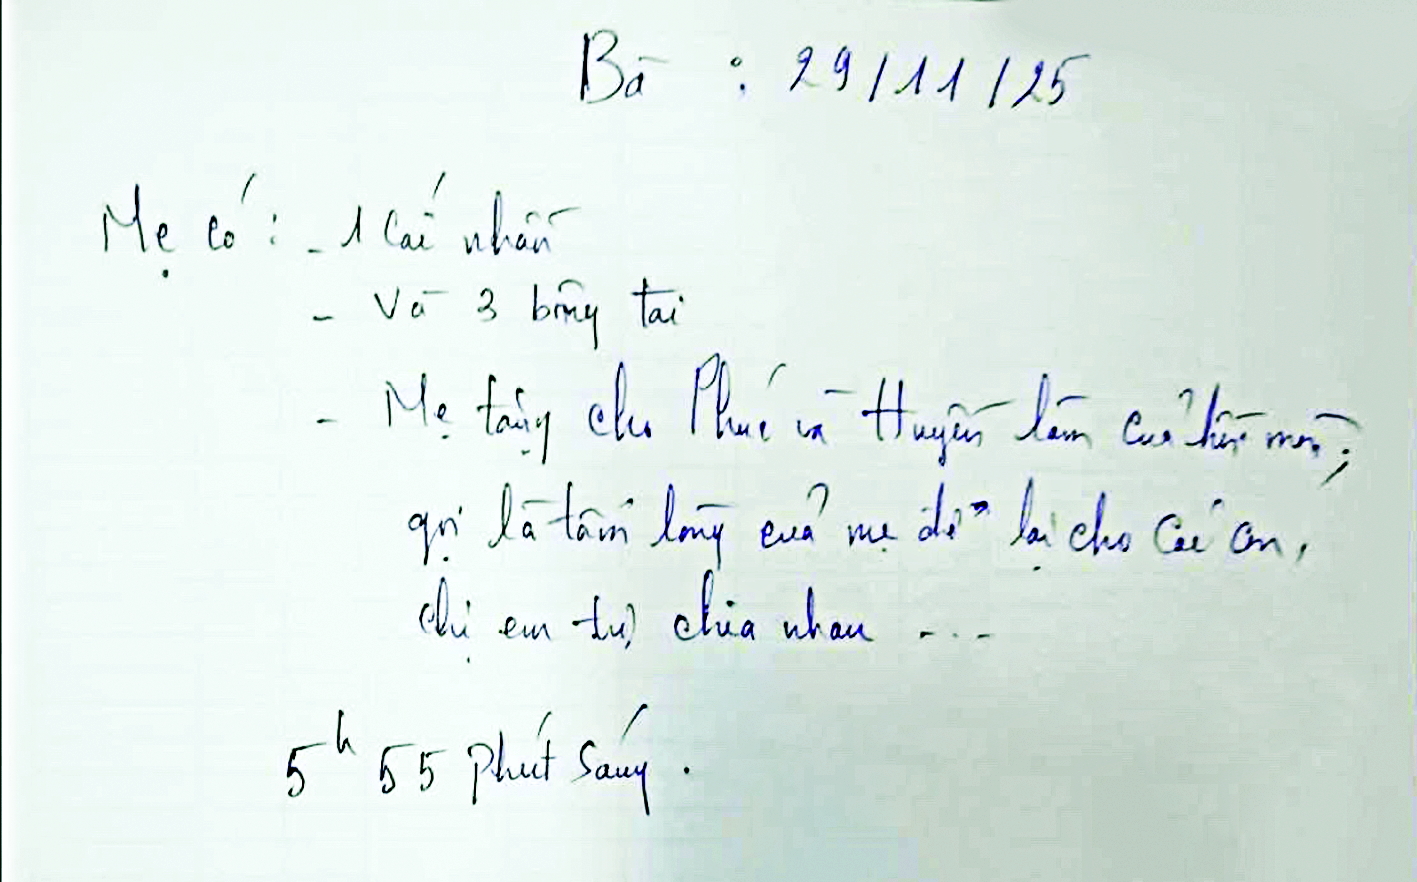 Bà : 29/11/25
Mẹ có : - 1 Cái nhẫn
- Và 3 bông tai
- Mẹ tặng cho Phúc và Huyền làm của hồi môn;
gọi là tấm lòng của mẹ để lại cho các con,
chị em tự chia nhau ...
5h 55 phút sáng.